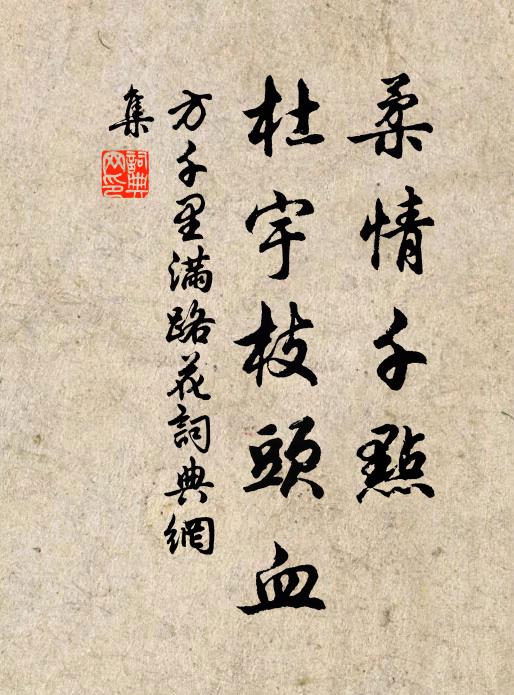 柔情千點
杜宇枝頭血
方千里滿路花詞典網
集
詞典網印